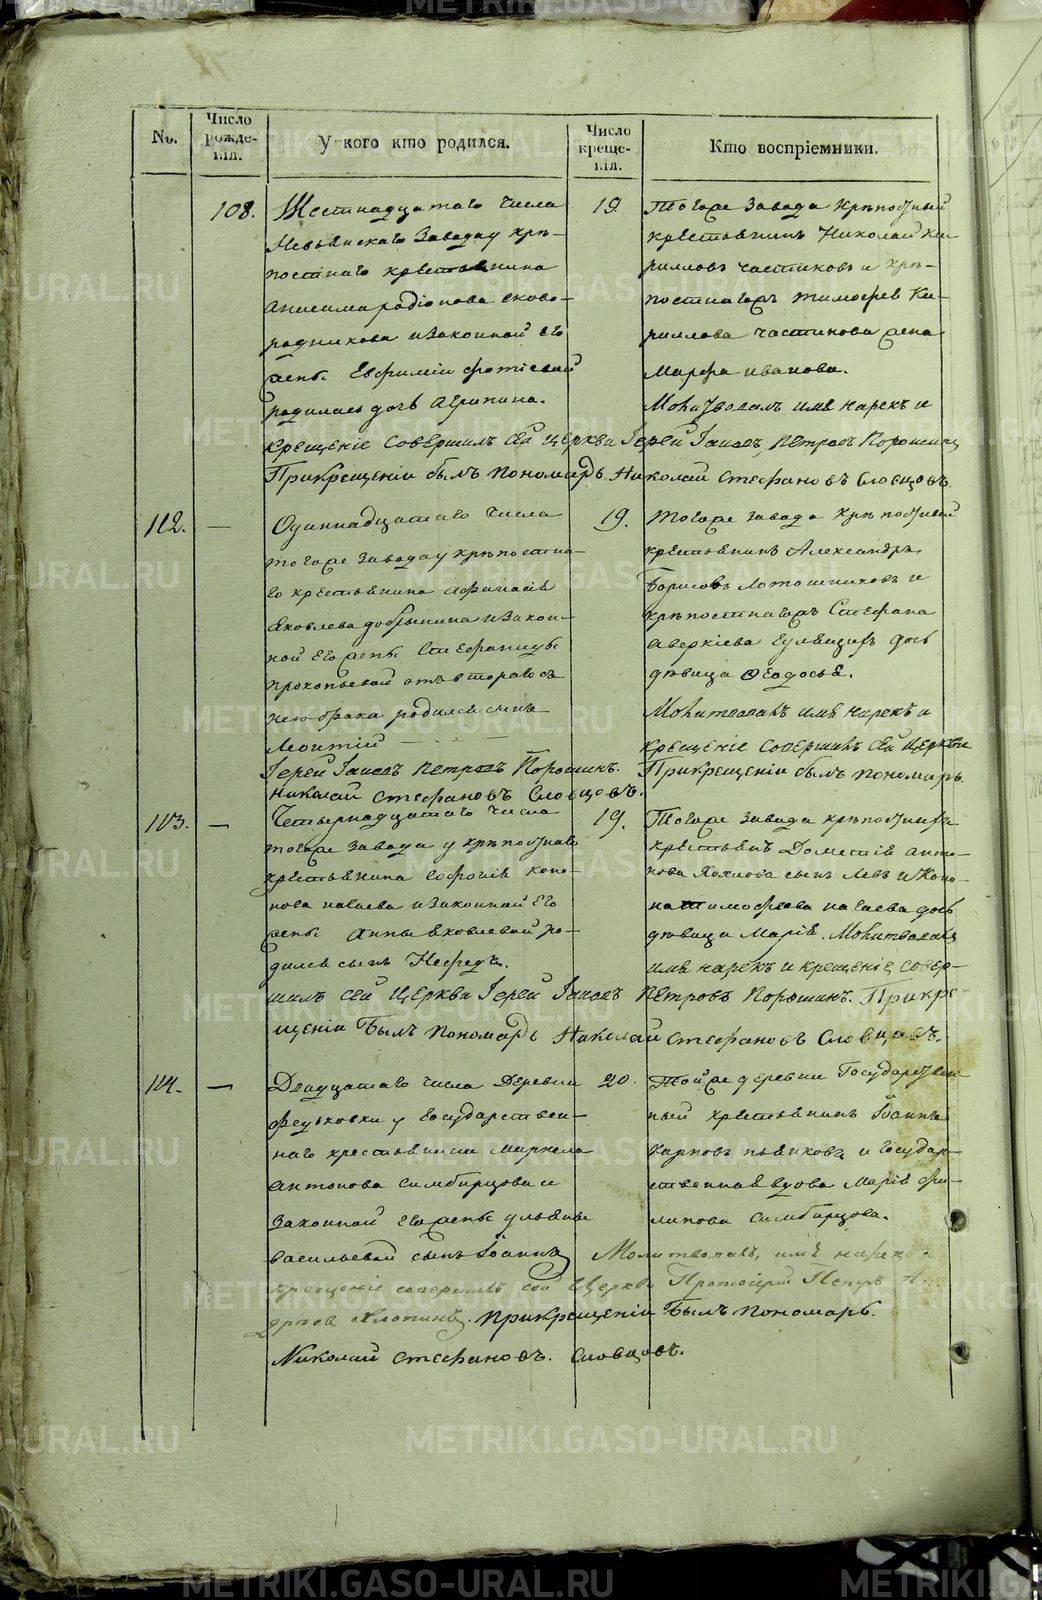 METRIKI.GASO-URAL.RU
No.
Число рожде-нія.
У кого кто родился.
Число креще-нія.
Кто воспріемники.
108.
Шестнадцатаго числа
Невьянскаго Завода у крѣ-
постнаго крестьянина
Анисима Родіонова Сково-
родникова и законной его
жены Евфиміи Фотіевой
родилась дочь Агрипина.
19.
Тогоже завода крѣпостный
крестьянинъ Николай Ки-
рилловъ Частиковъ и крѣ-
постнагожъ Тимофея Ки-
риллова Частикова жена
Марфа Иванова.
Молитвовалъ имя нарекъ и
крещеніе совершилъ сей церкви Іерей Іаковъ Петровъ Порошинъ
При крещеніи былъ пономарь Николай Стефановъ Словцовъ.
112. —
Одиннадцатаго числа
тогоже завода у крѣпостна-
го крестьянина Афанасія
Яковлева Добрынина и закон-
ной его жены Стефаниды
Прокопьевой отъ втораго съ
нею брака родился сынъ
Леонтій
19.
Тогоже завода крѣпостный
крестьянинъ Александръ
Борисовъ Лотошниковъ и
крѣпостнагожъ Стефана
Аверкіева дочь
дѣвица Ѳеодосья.
Молитвовалъ имя нарекъ и
крещеніе совершилъ сей церкви
Іерей Іаковъ Петровъ Порошинъ. При крещеніи былъ пономарь
Николай Стефановъ Словцовъ.
113. —
Четырнадцатаго числа
тогоже завода у крѣпостнаго
крестьянина Софонія Коно-
нова и законной его
жены Анны Яковлевой ро-
дился сынъ Нефедъ.
19.
Тогоже завода крѣпостнаго
Дометія Анто-
нова сынъ Левъ и Коно-
на Тимофеева дочь
дѣвица Марія. Молитвовалъ
имя нарекъ и крещеніе совер-
шилъ сей церкви Іерей Іаковъ Петровъ Порошинъ. При кре-
щеніи былъ пономарь Николай Стефановъ Словцовъ.
114. —
Двадцатаго числа Деревни
Федьковки у государствен-
наго крестьянина Маркела
Антонова Симбирцова и
законной его жены Ульяны
Васильевой сынъ Іоаннъ
20.
Тойже деревни Государствен-
ный крестьянинъ Іоаннъ
Карповъ и государ-
ственная вдова Марія Фи-
липова Симбирцова.
Молитвовалъ, имя нарекъ
крещеніе совершилъ сей Церкви Протоіерей Петръ Ан-
дреевъ Хлопинъ. При крещеніи былъ пономарь.
Николай Стефановъ. Словцовъ.